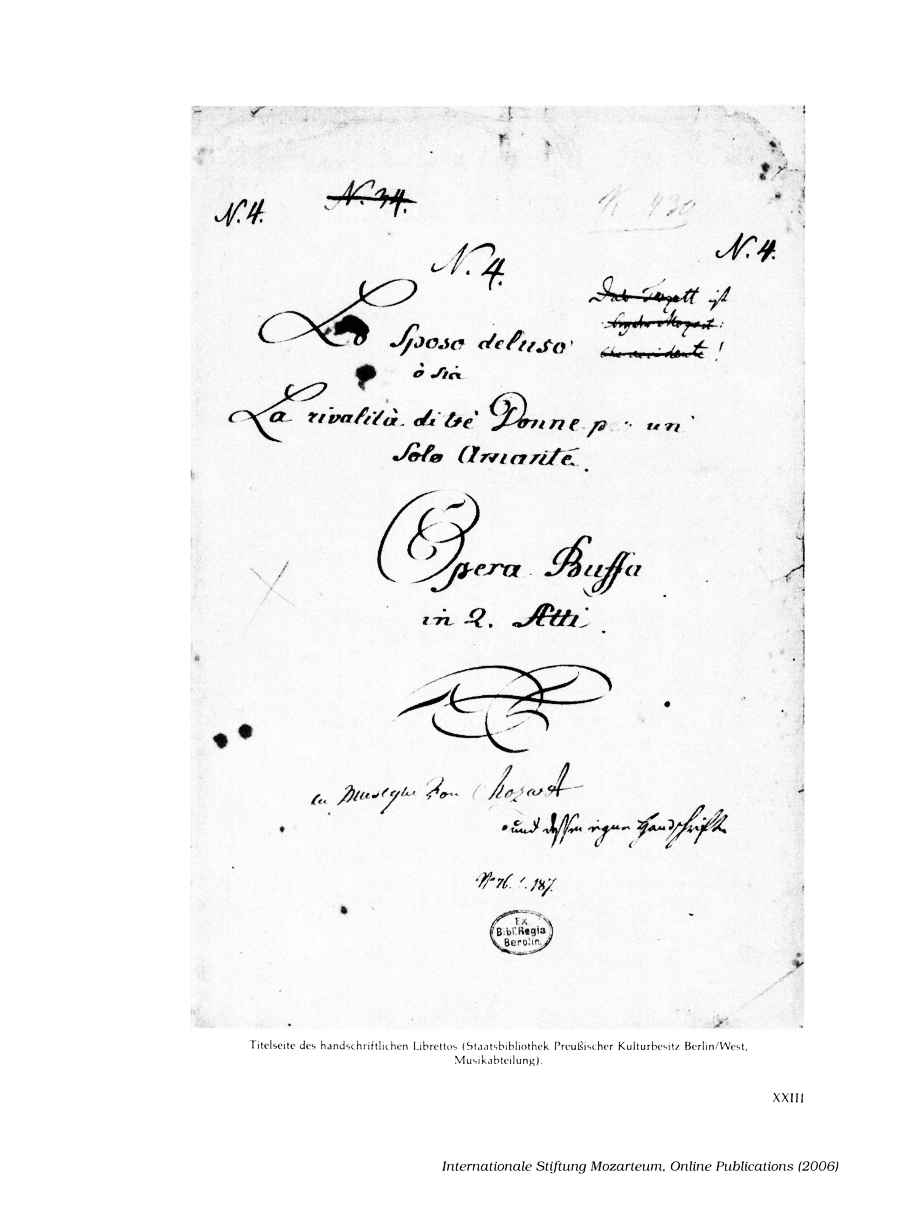 N. 34.
N. 4.
K 430
N. 4.
N. 4.
Das Terzett ist
!
Lo Sposo deluso
ò sia
La rivalità di trè Donne per un
Solo Amante.
Opera Buffa
in 2. Atti.
Von Mozart
und dessen eigne Handschrift
Ex
Bibl. Regia
Berolin.
Titelseite des handschriftlichen Librettos (Staatsbibliothek Preußischer Kulturbesitz Berlin/West,
Musikabteilung).
XXIII
Internationale Stiftung Mozarteum, Online Publications (2006)